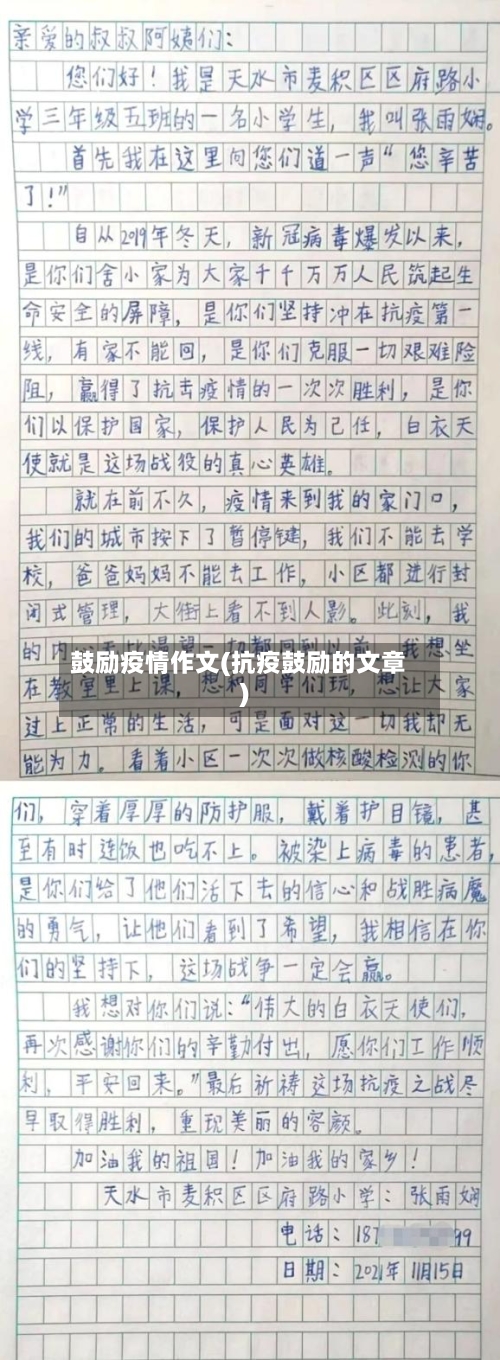 亲爱的叔叔阿姨们：
您们好！我是天水市麦积区区府路小
学三年级五班的一名小学生，我叫张雨娴。
首先我在这里向您们道一声“您辛苦
了！”
自从2019年冬天，新冠病毒爆发以来，
是你们舍小家为大家千千万万人民筑起生
命安全的屏障，是你们坚持冲在抗疫第一
线，有家不能回，是你们克服一切艰难险
阻，赢得了抗击疫情的一次次胜利，是你
们以保护国家，保护人民为己任，白衣天
使就是这场战役的真心英雄。
就在前不久，疫情来到我的家门口，
我们的城市按下了暂停键，我们不能去学
校，爸爸妈妈不能去工作，小区都进行封
闭式管理，大街上看不到人影。此刻，我
的内 想坐
鼓励疫情作文(抗疫鼓励的文章
)
在教室里上课，想和同学们玩，想让大家
过上正常的生活，可是面对这一切我却无
能为力。看着小区一次次做核酸检测的你
们，穿着厚厚的防护服，戴着护目镜，甚
至有时连饭也吃不上。被染上病毒的患者，
是你们给了他们活下去的信心和战胜病魔
的勇气，让他们看到了希望，我相信在你
们的坚持下，这场战争一定会赢。
我想对你们说：“伟大的白衣天使们，
再次感谢你们的辛勤付出，愿你们工作顺
利，平安回来。”最后祈祷这场抗疫之战尽
早取得胜利，重现美丽的容颜。
加油我的祖国！加油我的家乡！
天水市麦积区区府路小学：张雨娴
电话：187 99
日期：2021年11月15日